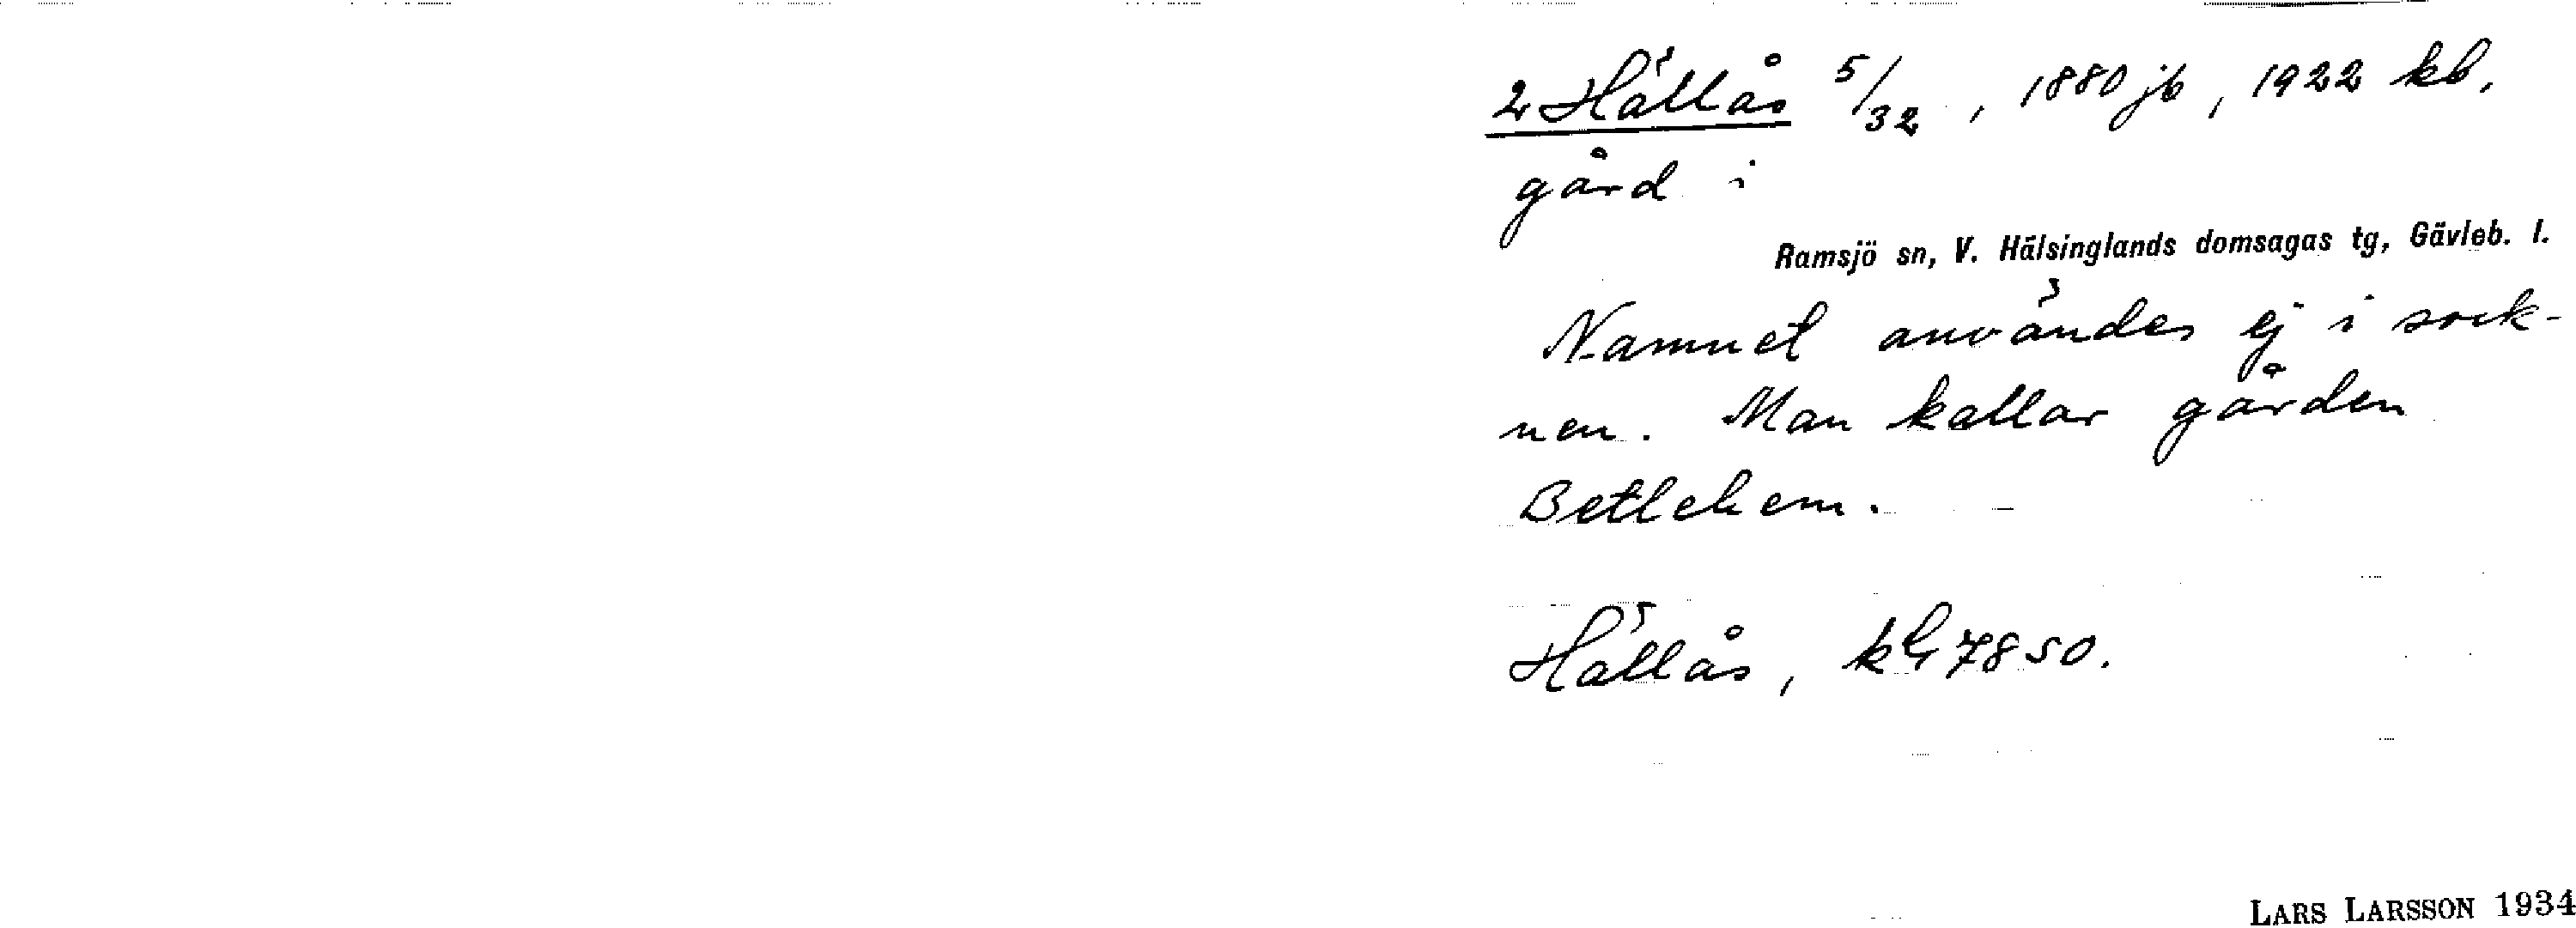 2 Hällås 5/32, 1880 jb, 1922 kb.
gård i
Ramsjö sn, V. Hälsinglands domsagas tg, Gävleb. l.
Namnet användes ej i sock-
nen. Man kallar gården
Betlehem. —
Hällås, kb 7850.
LARS LARSSON 1934